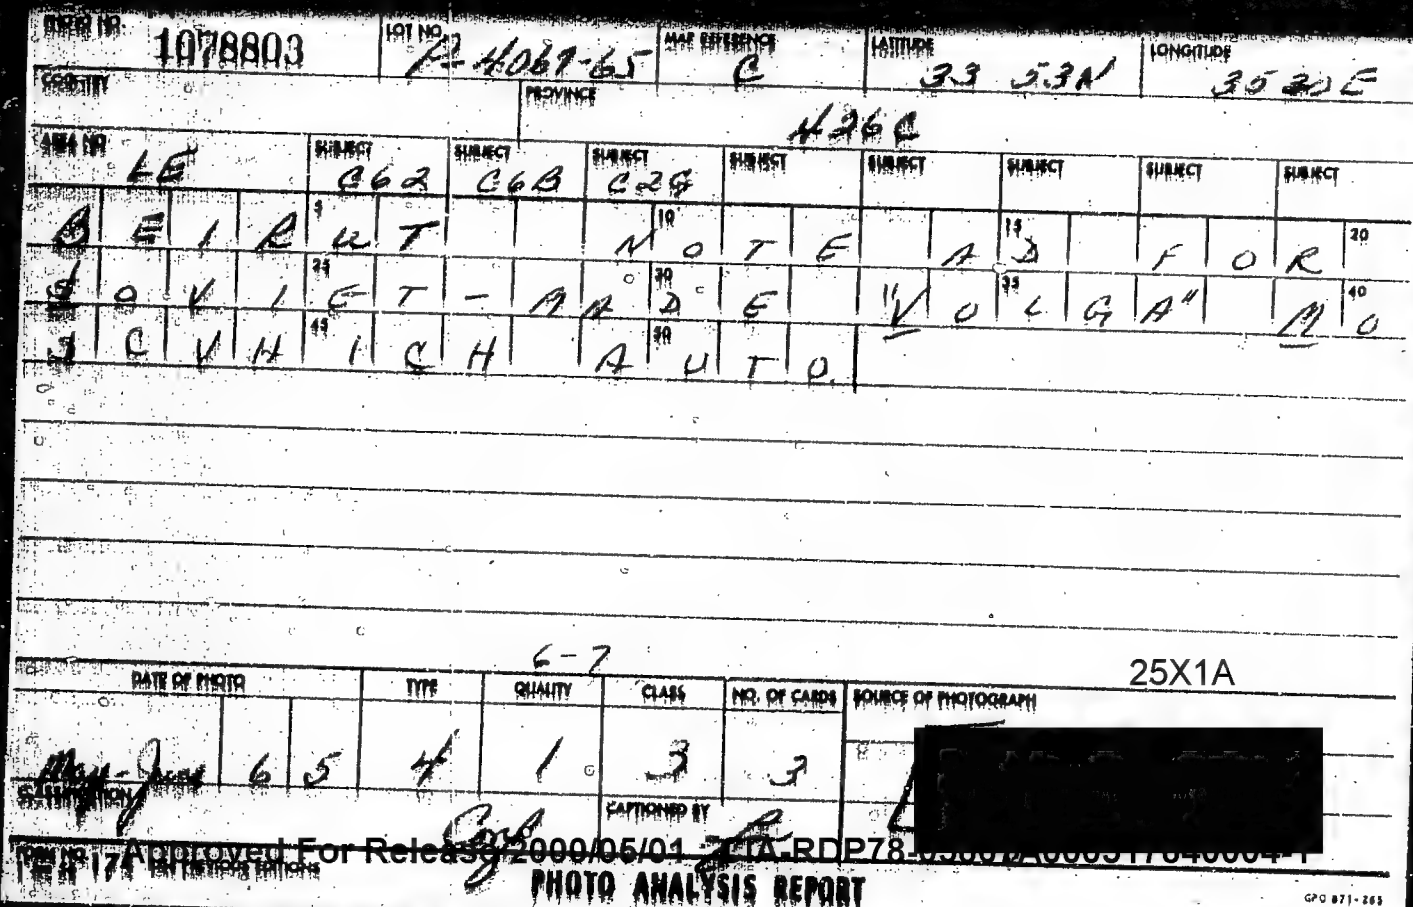 PHOTO NO. 1078803 LOT NO. P-4067-65 MAP REFERENCE C LATITUDE 33 53N LONGITUDE 35 30 E
COUNTRY PROVINCE 426C
AREA NO. LE SUBJECT C62 SUBJECT C6B SUBJECT C2G SUBJECT SUBJECT SUBJECT SUBJECT SUBJECT
BEIRUT NOTE AD FOR
5 10 15 20
SOVIET-MADE "VOLGA" MO
25 30 35 40
45 50
AUTO.
6-7
25X1A
DATE OF PHOTO TYPE QUALITY CLASS NO. OF CARDS SOURCE OF PHOTOGRAPH
May-June 65 4 1 3 3
CLASSIFICATION Conf CAPTIONED BY
Approved For Release 2000/05/01
FORM NO.
PHOTO ANALYSIS REPORT
GPO 871-265